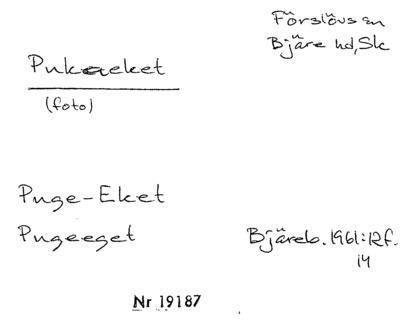 Förslövs sn
Bjäre hd, Sk
Pukaeket
(foto)
Puge-Eket
Pugeeget
Bjäreb. 1961:12f.
14
Nr 19187